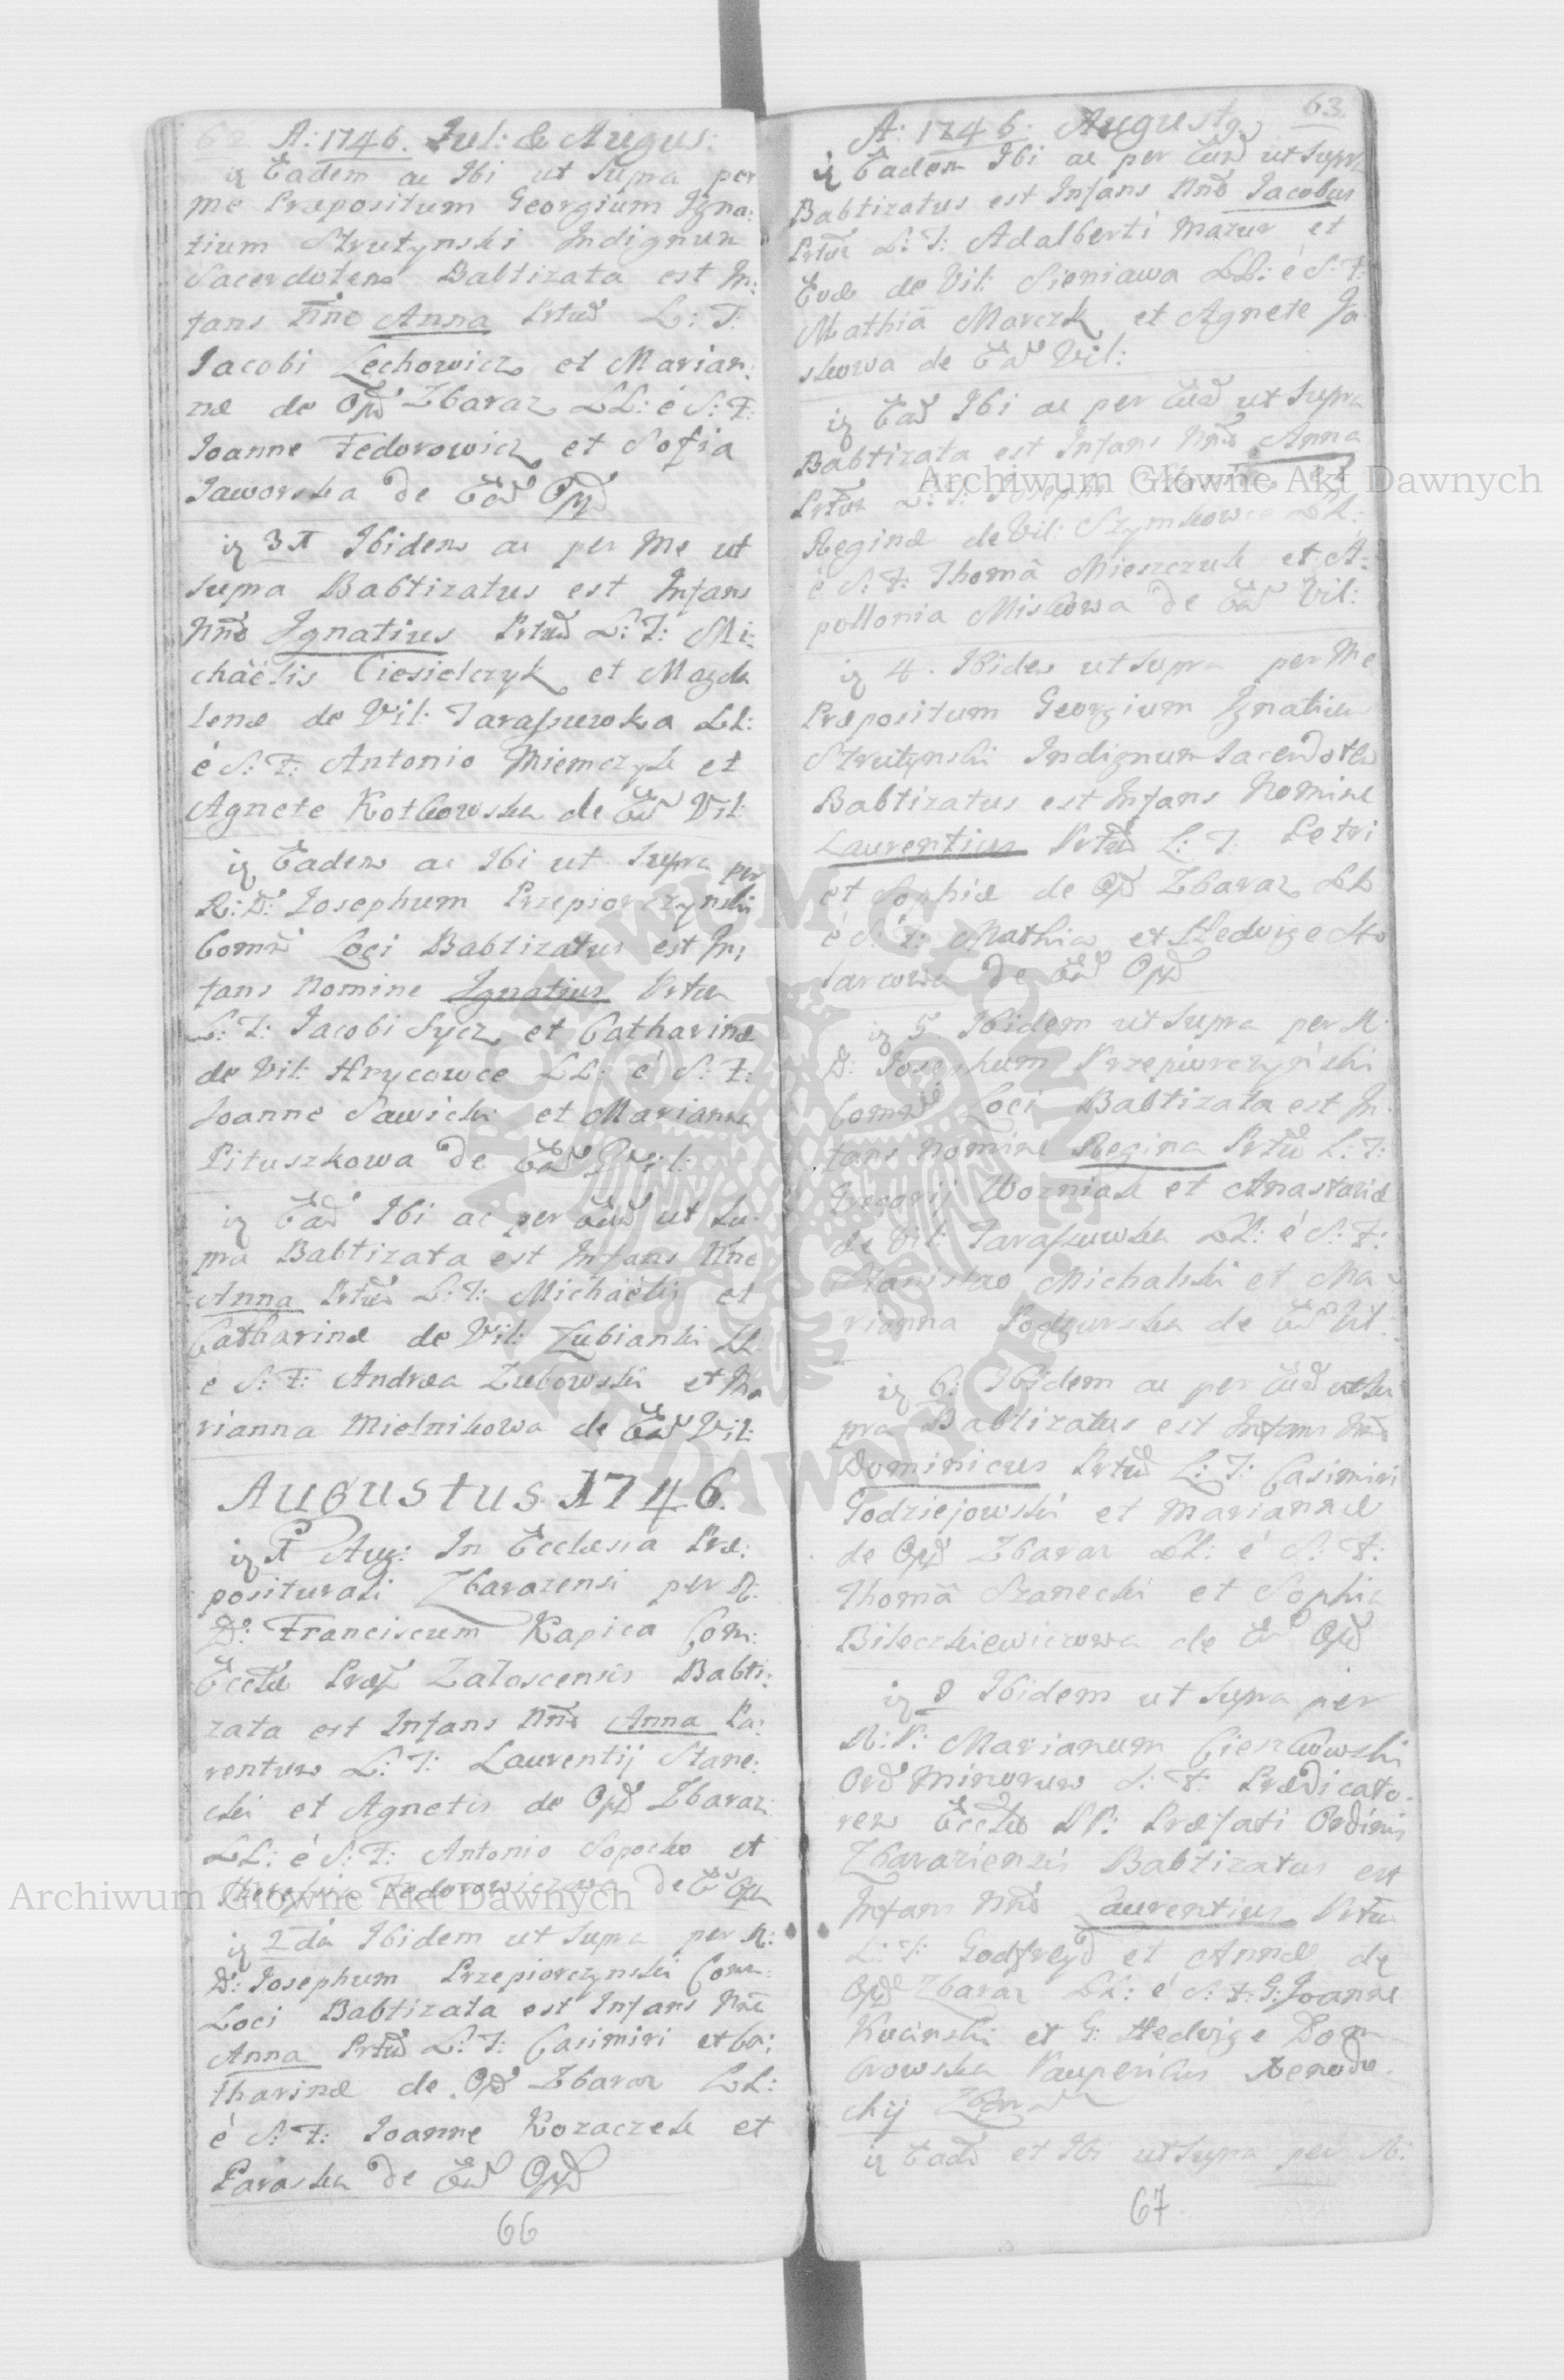 62 A: 1746. Jul: & Augus:
iz Eadem ac Ibi ut Supra per
me Præpositum Georgium Igna:
tium Strutynski Indignum
Sacerdotem Babtizata est In:
fans Nne Anna Prtũd L: T:
Iacobi Lechowicz et Marian:
næ de Opd Zbaraz LL: é S: F:
Ioanne Fedorowicz et Sofia
Jaworska de Eãd Opd
iz 31 Ibidem ac per Me ut
supra Babtizatus est Infans
Nnẽ Ignatius Prtũd L: T: Mi:
chäëlis Ciesielczyk et Magda
lenæ de Vil: Tarassuwka LL:
é S: F: Antonio Niemczyk et
Agnete Kotkowska de Eãd Vil:
iz Eadem ac Ibi ut Supra per
R: D: Iosephum Przepiorczynski
Comñ Loci Babtizatus est In:
fans Nomine Ignatius Prtũ
L: T: Iacobi Sycz et Catharinæ
de Vil: Hrycowce LL: é S: F:
Ioanne Sawicki et Marianna
Pituszkowa de Eãd Vil:
iz Eãd Ibi ac per Eũd ut Su:
pra Babtizata est Infans Nne
Anna Prtũ L: T: Michäëlis et
Catharinæ de Vil: Lubianki LL
e S: F: Andræa Zubowski et Ma
rianna Mielnikowa de Eãd Vil:
Augustus 1746.
iz 1 Aug: In Ecclesia Præ:
positurali Zbarazensi per R:
D: Franciscum Kapica Com:
Eccłæ Præp Załoscensis Babti:
zata est Infans Nnẽ Anna Pa:
rentum L: T: Laurentij Stane:
cki et Agnetis de Opd Zbaraz
LL: é S: F: Antonio Sopocko et
Theresia Fedorowiczowa de E Opd
iz 2da Ibidem ut Supra per R:
D: Iosephum Przepiorczynski Com:
Loci Babtizata est Infans Nne
Anna Prtũd L: T: Casimiri et Ca:
tharinæ de Opd Zbaraz LL:
é S: F: Ioanne Kozaczek et
Paraska de Eãd Opd
66
63.
A: 1746. Augusty
iz Eadem Ibi ac per Eũd ut Supra
Babtizatus est Infans Nnẽ Iacobus
Prtũm L: T: Adalberti Mazur et
Evæ de Vil: Sieniawa LL: é S: F:
Mathiã Marczk et Agnete Ja
skowa de Eãd Vil:
iz Eãd Ibi ac per Eũd ut Supra
Babtizata est Infans Nnẽ Anna
Prtũm L: T: Josephi et
Reginæ de Vil: Szymkowce LL:
é S: F: Thomã Mieszczuk et A:
pollonia Miskowa de Eãd Vil:
iz 4. Ibidem ut Supra per Me
Præpositum Georgium Ignatium
Strutynski Indignum Sacerdotem
Babtizatus est Infans Nomine
Laurentius Prtũd L: T: Petri
et Sophiæ de Opd Zbaraz LL
é S: F: Mathia et Hedvige
de Eãd Opd
iz 5 Ibidem ut Supra per R:
D: Josephum Przepiurczyński
Comñd Loci Babtizata est In:
fans Nomine Regina Prtũd L: T:
Gregorij Wozniak et Anastasiæ
de Vil: Tarassuwka LL: é S: F:
Stanislao Michalski et Ma
rianna Podgurska de Eãd Vil:
iz 6: Ibidem ac per Eũd ut Su
pra Babtizatus est Infans Nnẽ
Dominicus Prtũd L: T: Casimiri
Godziejowski et Mariannæ
de Opd Zbaraz LL: é S: F:
Thomã Stanecki et Sophia
Biłeckiewiczowa de Eãd Opd
iz 8 Ibidem ut Supra per
R: P: Marianum Cienkowski
Ord Minorum S: F: Prædicato:
rem Eccłæ PP: Præfati Ordinis
Zbaraziensis Babtizatus est
Infans Nnẽ Laurentius Prtũ
L: T: Godfreyd et Annæ de
Opd Zbaraz LL: é S: F: G: Joanne
Kucinski et G: Hedvige Dom
browska Pauperibus Xenodo:
chij Zbar
iz Eadẽ et Ibi ut Supra per R:
67
Archiwum Główne Akt Dawnych
Archiwum Główne Akt Dawnych
ARCHIWUM GŁÓWNE AKT DAWNYCH